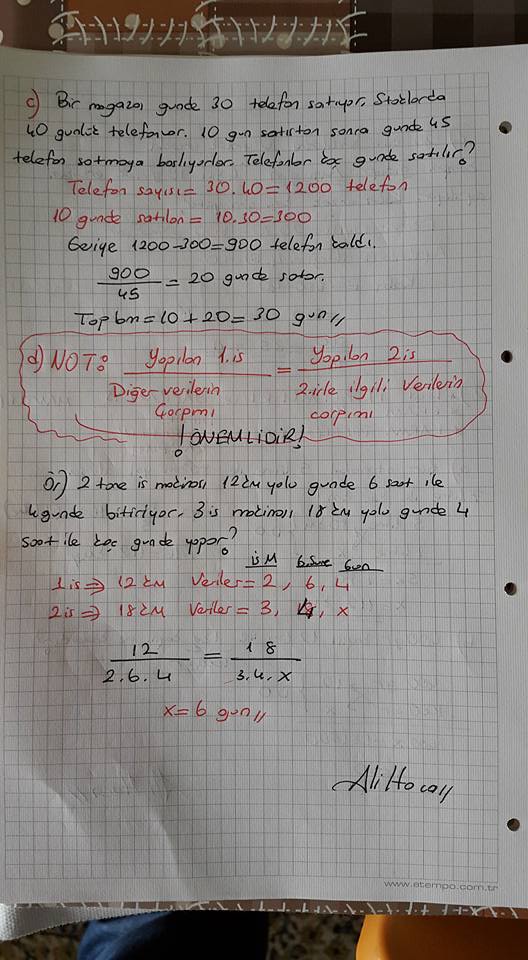 c) Bir magaza gunde 30 telefon satıyor. Stoklarda
40 gunluk telefon var. 10 gun satıstan sonra gunde 45
telefon satmaya baslıyorlar. Telefonlar kaç gunde satılır?
Telefon sayısı = 30.40 = 1200 telefon
10 gunde satılan = 10.30 = 300
Geriye 1200-300 = 900 telefon kaldı.
900/45 = 20 gunde satar.
Toplam = 10 + 20 = 30 gun //
d) NOT: Yapılan 1.is / Diğer verilerin Çarpımı = Yapılan 2is / 2.isle ilgili Verilerin carpımı
! ÖNEMLİDİR!
Ör) 2 tane is makinası 12 km yolu gunde 6 saat ile
4 gunde bitiriyor. 3 is makinası 18 km yolu gunde 4
saat ile kaç gunde yapar?
is M G.Sure Gun
1 is => 12 km Veriler = 2, 6, 4
2 is => 18 km Veriler = 3, 4, x
12/2.6.4 = 18/3.4.x
x = 6 gun //
Ali Hoca //
www.etempo.com.tr